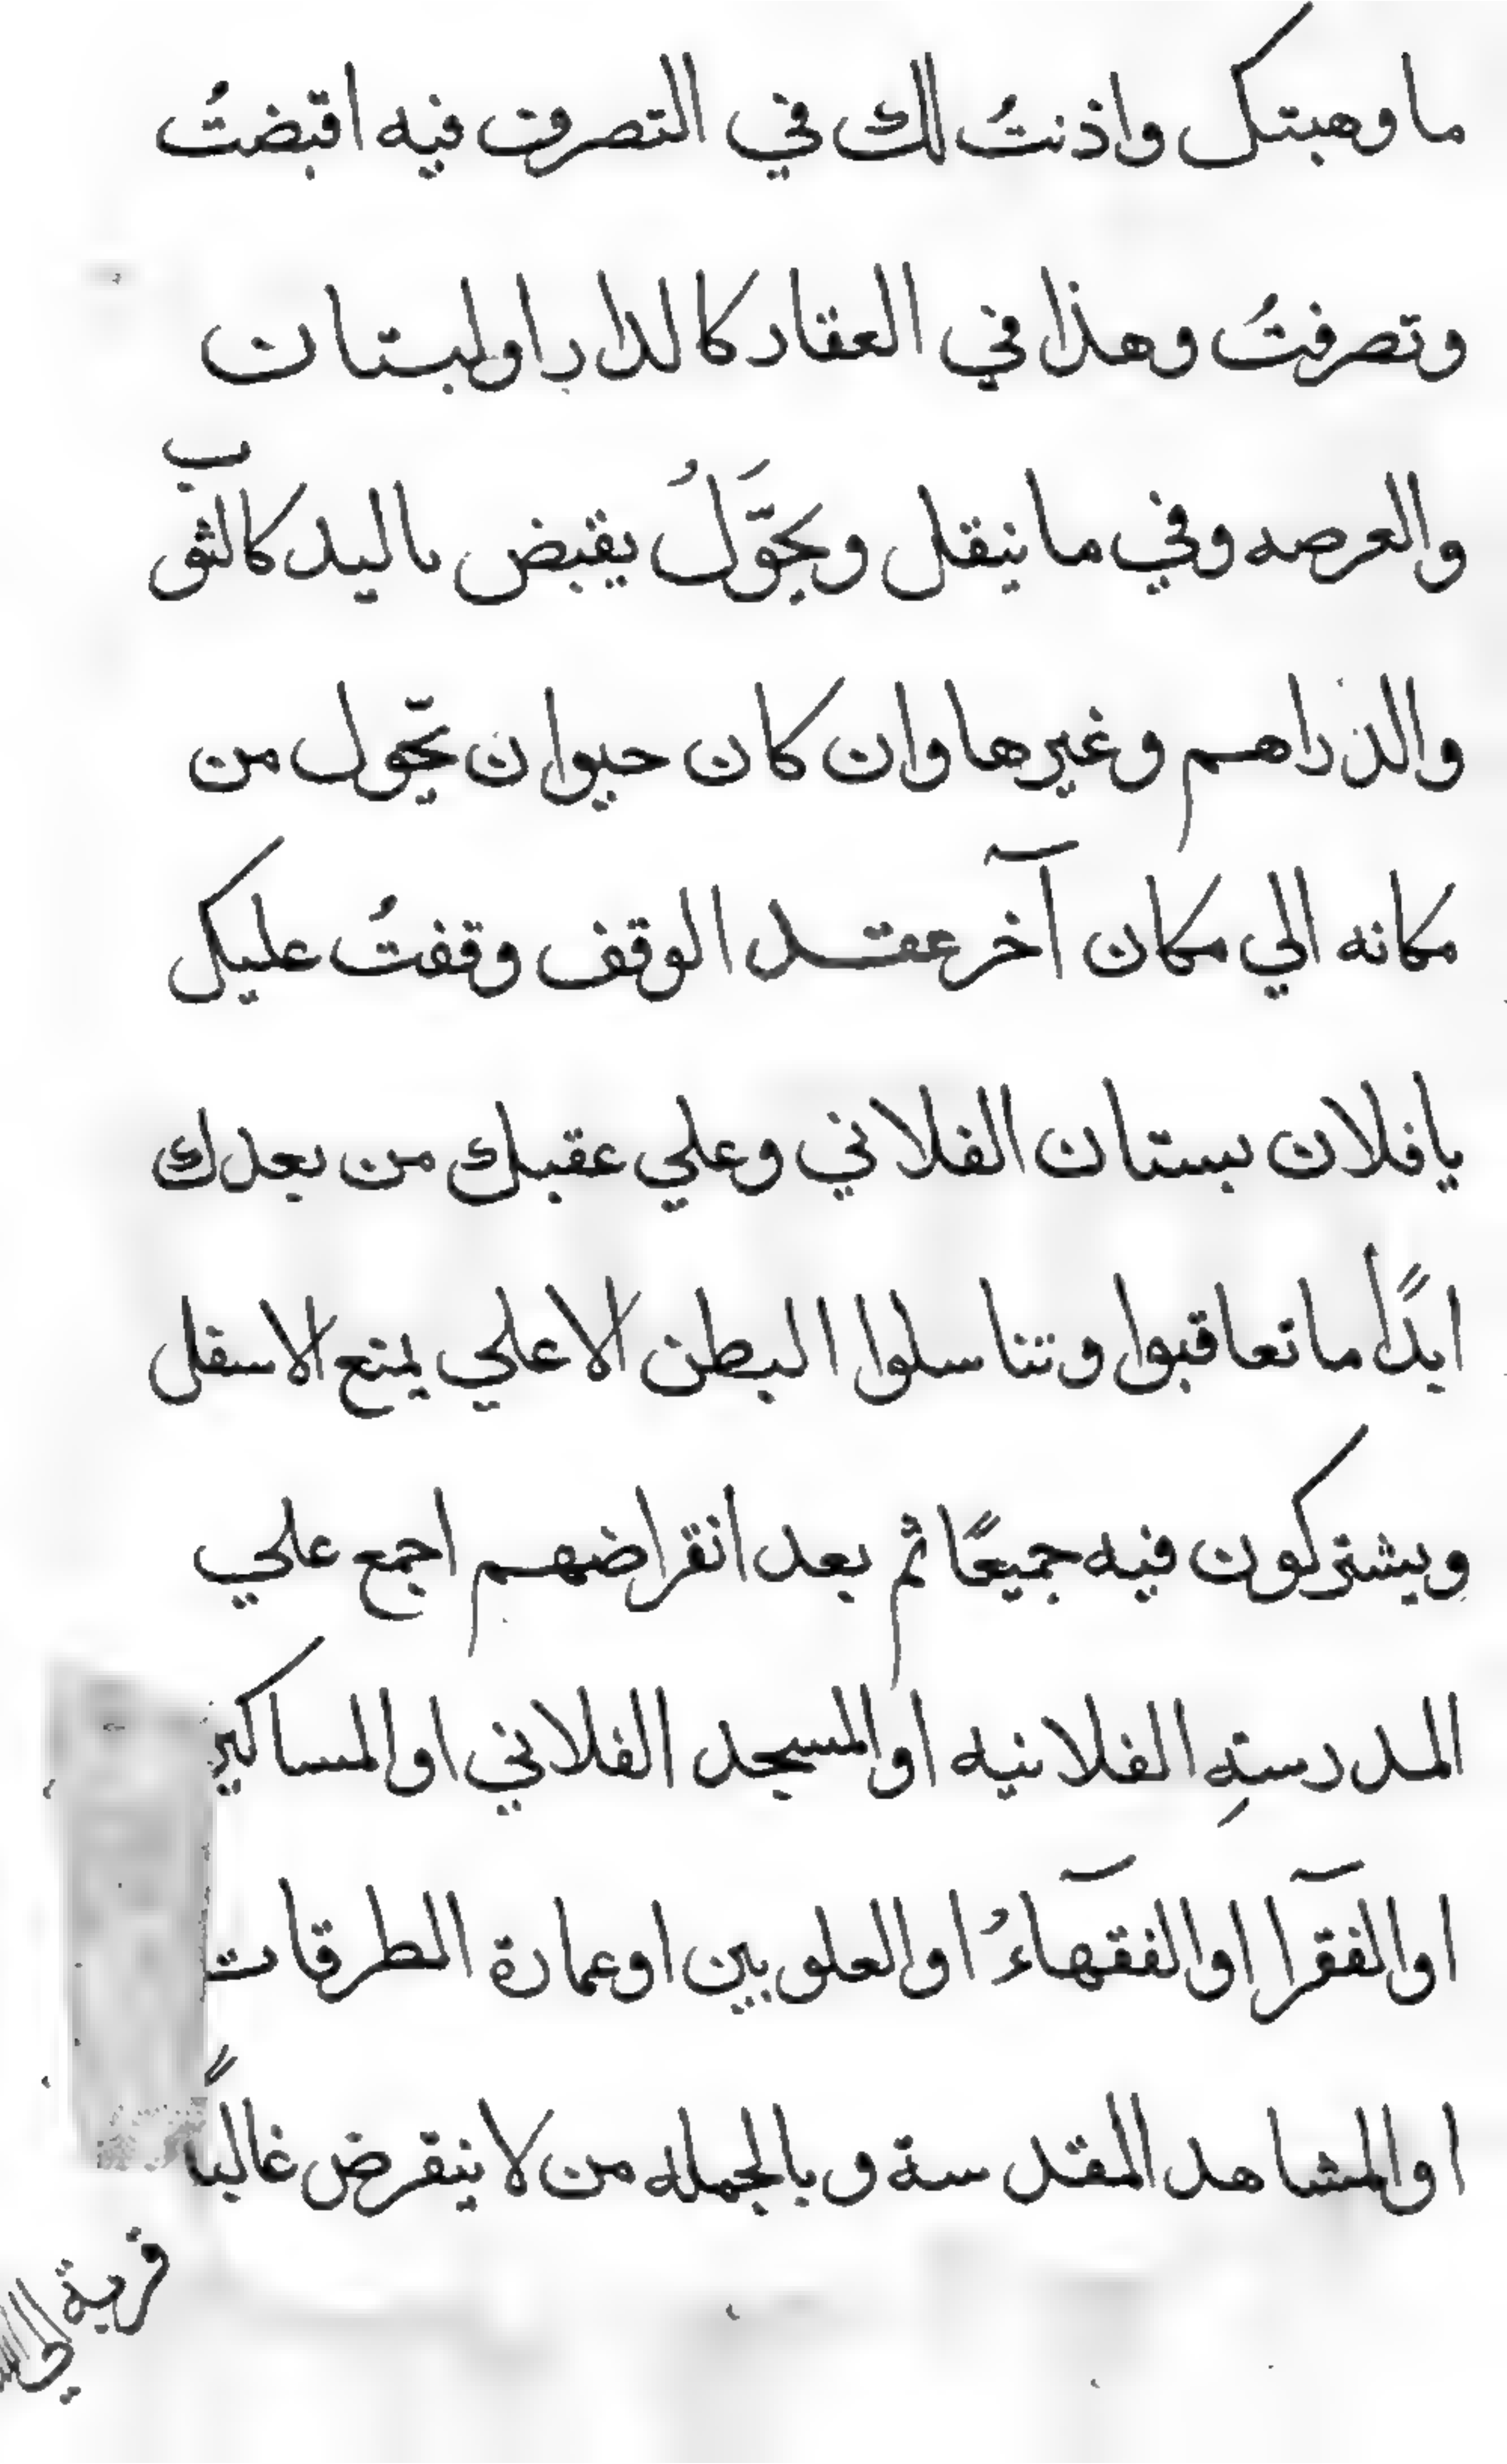 ما وهبتك واذنتُ لك في التصرف فيه اقبضتُ
وتصرفتُ وهذا في العقار كالدار اولبستان
والعرصه وفي ما نيقل ويحَوَّلُ يقبض باليد كالثوب
والدراهم وغيرها وان كان حيوان تحّول من
مكانه الي مكان آخر عقد الوقف وقفتُ عليك
يا فلان بستان الفلاني وعلي عقبك من بعدك
ابدًا ما تعاقبوا وتناسلوا البطن الاعلي يمنع الاسفل
ويشتركون فيه جميعًا ثم بعد انقراضهم اجمع علي
المدرستهِ الفلانيه او المسجد الفلاني او المساكين
او الفقرآ او الفقهآءُ او العلويين او عمارة الطرقات
او المشاهد المقدسة وبالجمله من لا ينقرض غالبًا
قربة الي